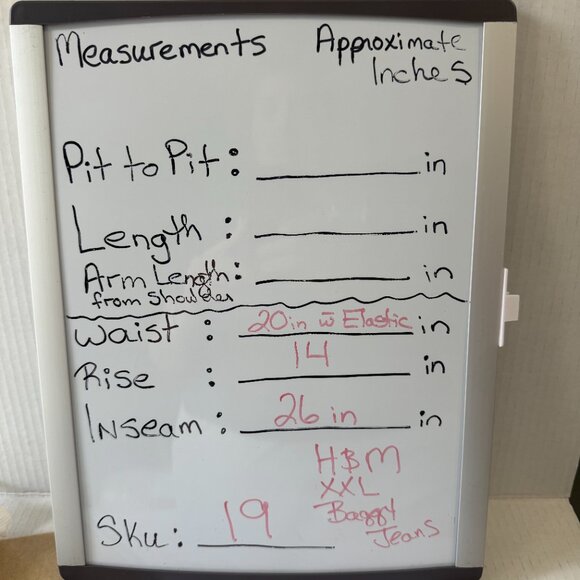 Measurements Approximate
Inches
Pit to Pit: ______ in
Length: ______ in
Arm Length: ______ in
from Shoulder
Waist: 20 in w̅ Elastic in
Rise: 14 in
Inseam: 26 in in
HBM
XXL
Baggy
Jeans
Sku: 19